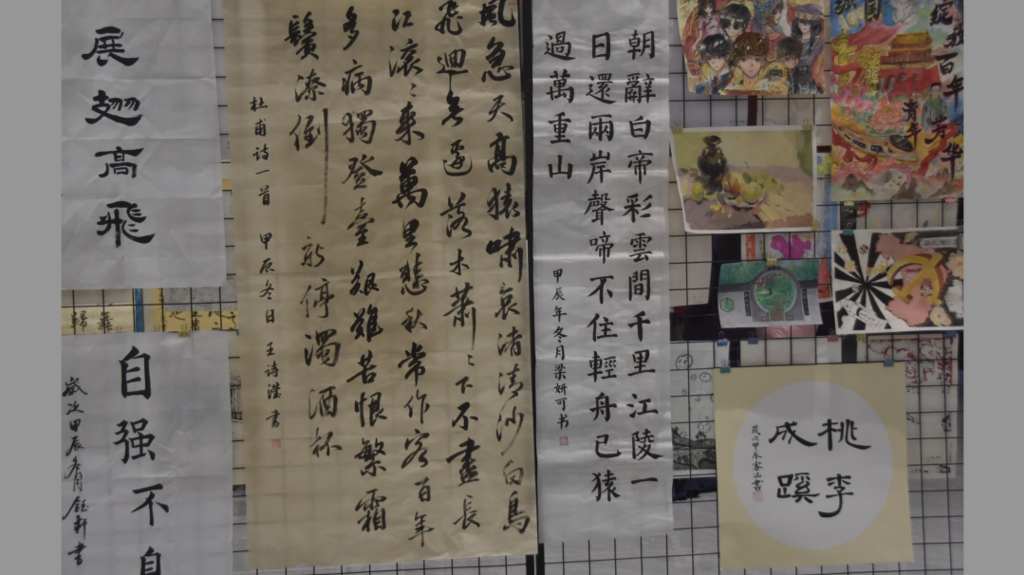 展翅高飛
自强不
歲次甲辰
書
風急天高猿嘯哀渚清沙白鳥
飛迴無邊落木蕭〻下不盡長
江滾〻來萬里悲秋常作客百年
多病獨登臺艱難苦恨繁霜
鬢潦倒新停濁酒杯
杜甫詩一首 甲辰冬日 王詩
書
朝辭白帝彩雲間千里江陵一
日還兩岸聲啼不住輕舟已猿
過萬重山
甲辰年冬月梁妍可书
绽我百年芳华
青年
桃李
成蹊